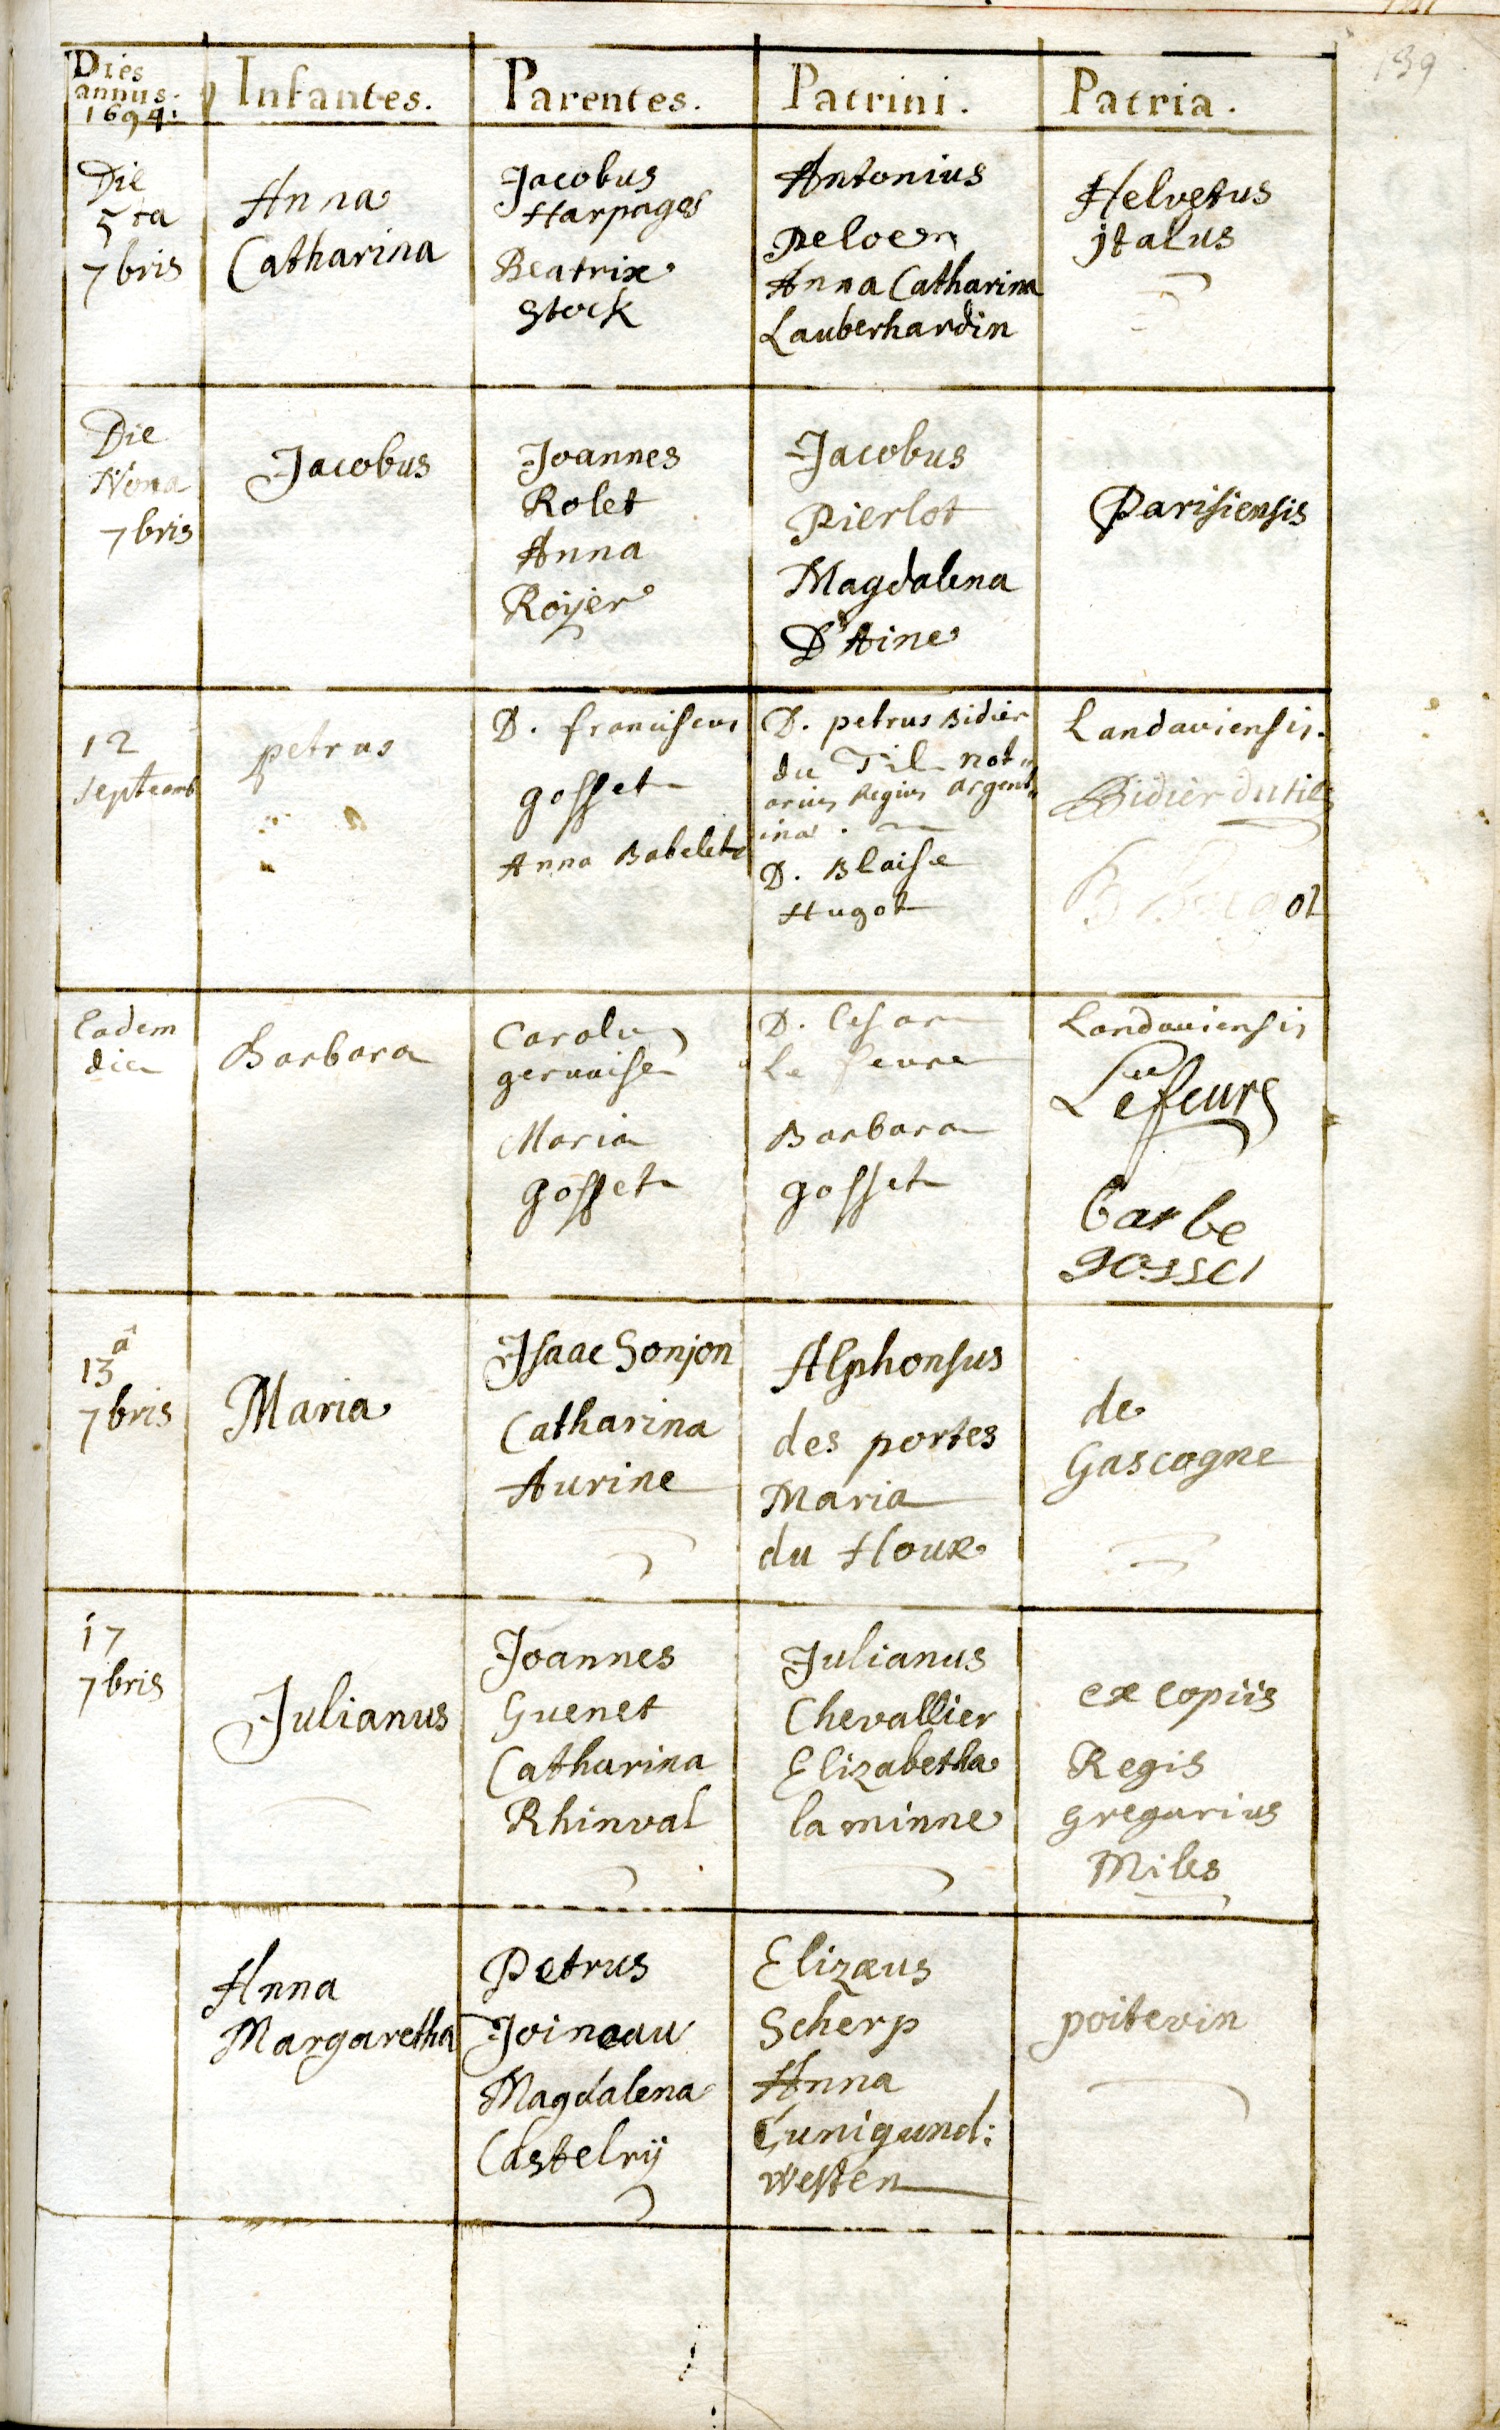 139
Dies
annus.
1694:
Infantes.
Parentes.
Patrini.
Patria.
Die
5ta
7bris
Anna
Catharina
Jacobus
Harpages
Beatrix
Stock
Antonius
Peloen
Anna Catharina
Lauberhardin
Helvetus
jtalus
Die
Nona
7bris
Jacobus
Joannes
Rolet
Anna
Roÿer
Jacobus
Pierlot
Magdalena
D'Aine
Parisiensis
12
septemb
petrus
D. franciscus
gosset
Anna Babelet
D. petrus Bidier
du Til not„
arius Regius argent„
ina.
D. Blaise
Hugot
Landaviensis.
Bidier dutil
Eadem
die
Barbara
Carolus
gervaise
Maria
gosset
D. Cesar
le feure
Barbara
gosset
Landaviensis
Lefeure
barbe
gosset
13a
7bris
Maria
Isaac Sonjon
Catharina
Aurine
Alphonsus
des portes
Maria
du Houx
de
Gascogne
17
7bris
Julianus
Joannes
Guenet
Catharina
Rhinval
Julianus
Chevallier
Elizabetha
la minne
ex copiis
Regis
gregarius
Miles
Anna
Margaretha
Petrus
Joineau
Magdalena
Castelrÿ
Elizæus
Scherp
Anna
Cunigund:
westen
poitevin